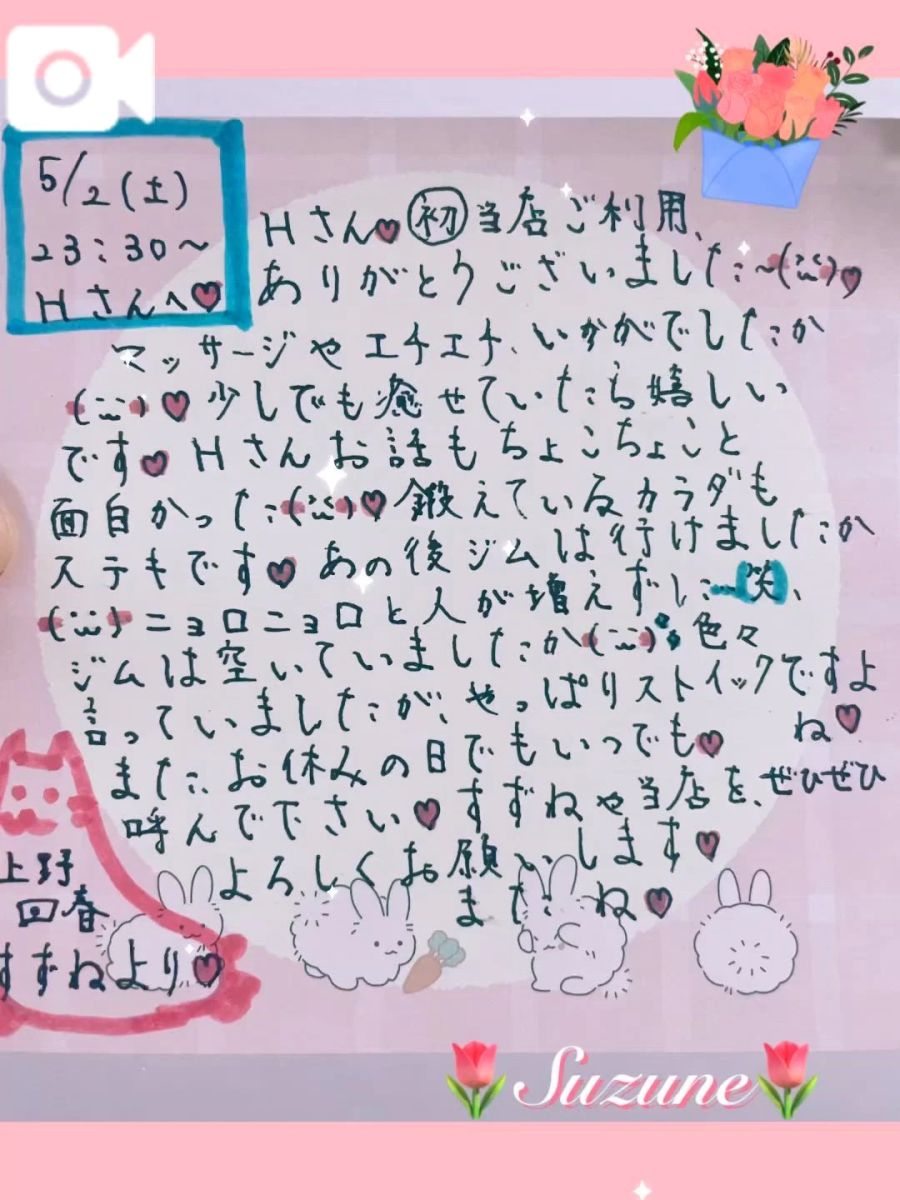 5/2(土)
23:30〜
Hさんへ♥
Hさん♥㊗初当店ご利用、
ありがとうございました〜♥
マッサージやエチエチ、いかがでしたか
♥少しでも癒せていたら嬉しい
です♥Hさんお話もちょこちょこと
面白かった♥鍛えているカラダも
ステキです♥あの後ジムは行けましたか
ニョロニョロと人が増えずに…笑、
ジムは空いていましたか 色々
言っていましたが、やっぱりストイックですよ
ね♥
また、お休みの日でもいつでも♥
呼んで下さい♥すずねや当店を、ぜひぜひ
よろしくお願いします♥
またね♥
上野
回春
すずねより♥
Suzune